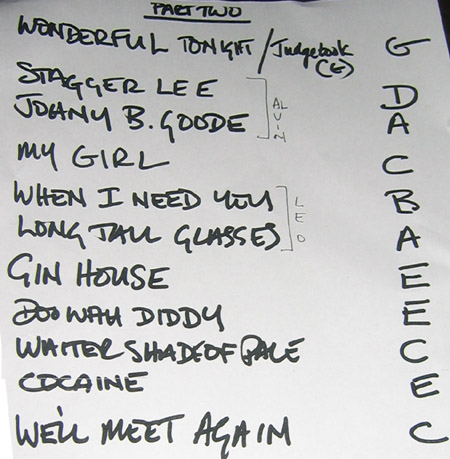 PART TWO
WONDERFUL TONIGHT / Judgebook (G) G
STAGGER LEE D
JOHNY B. GOODE A
ALVIN
MY GIRL C
WHEN I NEED YOU B
LONG TALL GLASSES A
LEO
GIN HOUSE E
DOO WAH DIDDY E
WAITER SHADE OF PALE C
COCAINE E
WE'LL MEET AGAIN C